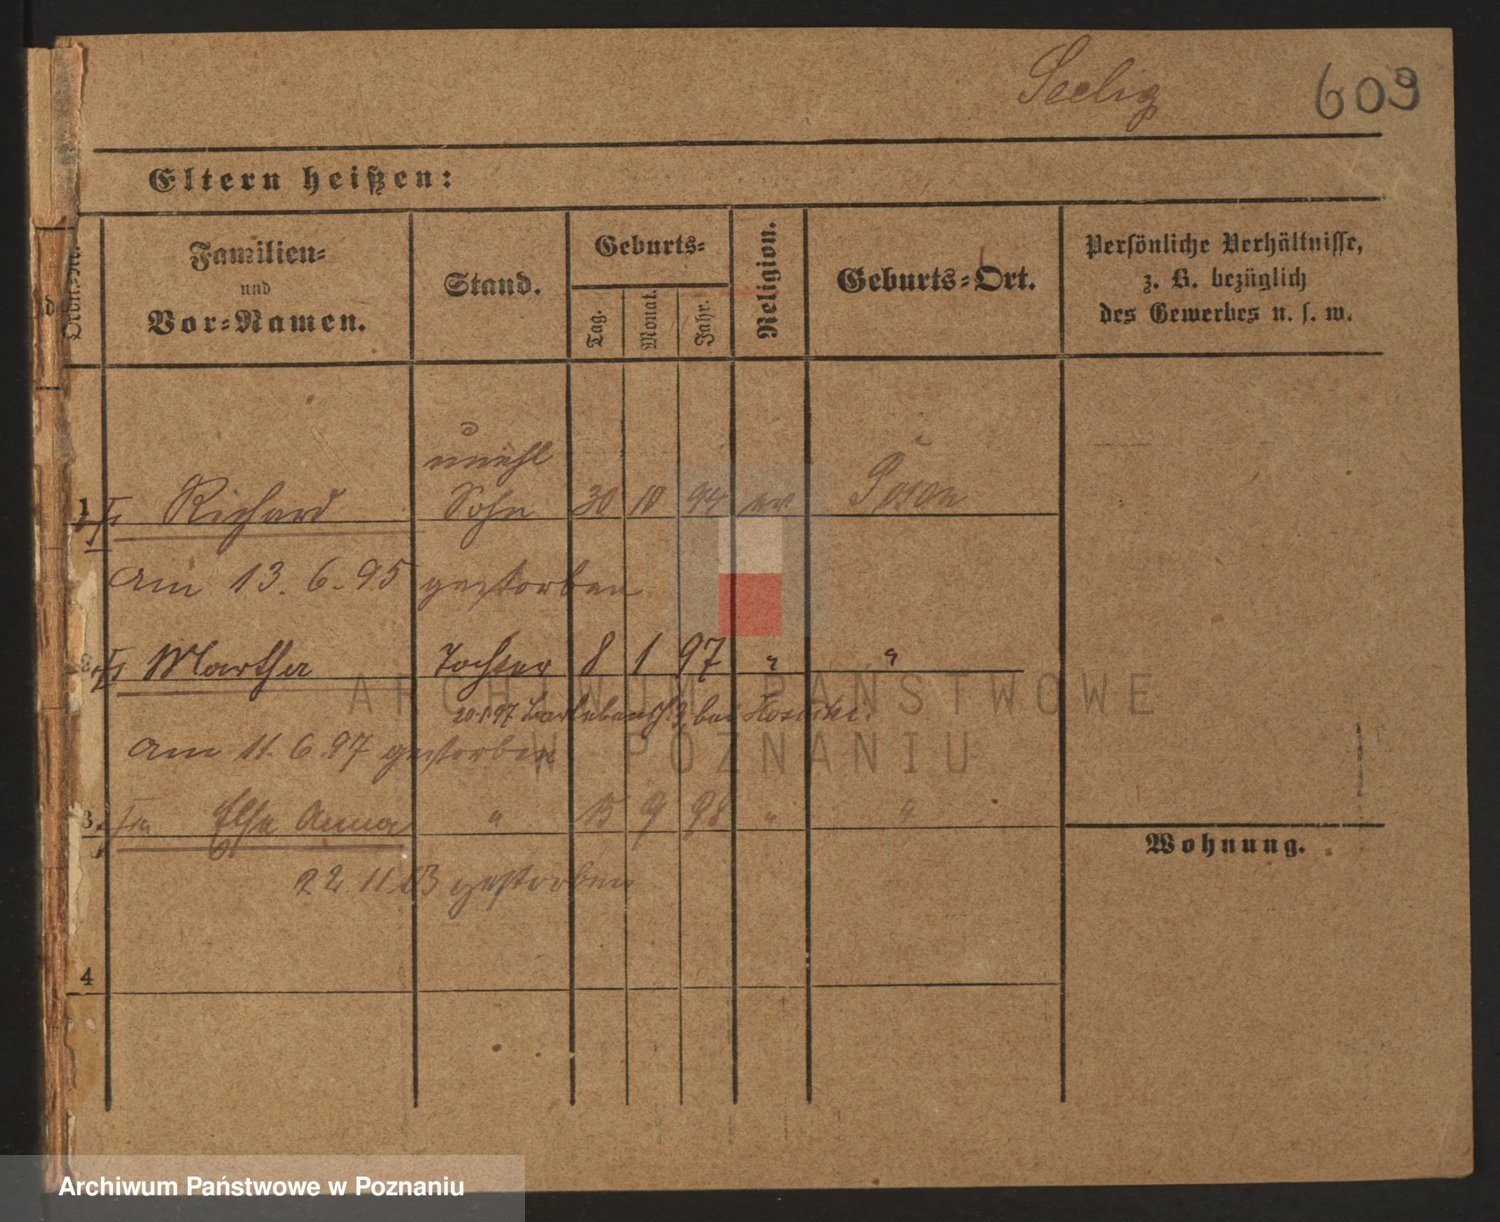 Seelig
609
Eltern heißen:
Familien=
und
Vor=Namen.
Stand.
Geburts=
Tag.
Monat.
Jahr.
Religion.
Geburts=Ort.
Persönliche Verhältnisse,
z. B. bezüglich
des Gewerbes u. s. w.
unehl
1 Richard Sohn 30 10 94 ev Posen
am 13. 6. 95 gestorben
2 Martha Tochter 8 1 97 " "
20.1.97 bei
am 11. 6. 97 gestorben
3 Else Anna " 15 9 98 " "
22 11 03 gestorben
4
Wohnung.
ARCHIWUM PAŃSTWOWE
W POZNANIU
Archiwum Państwowe w Poznaniu